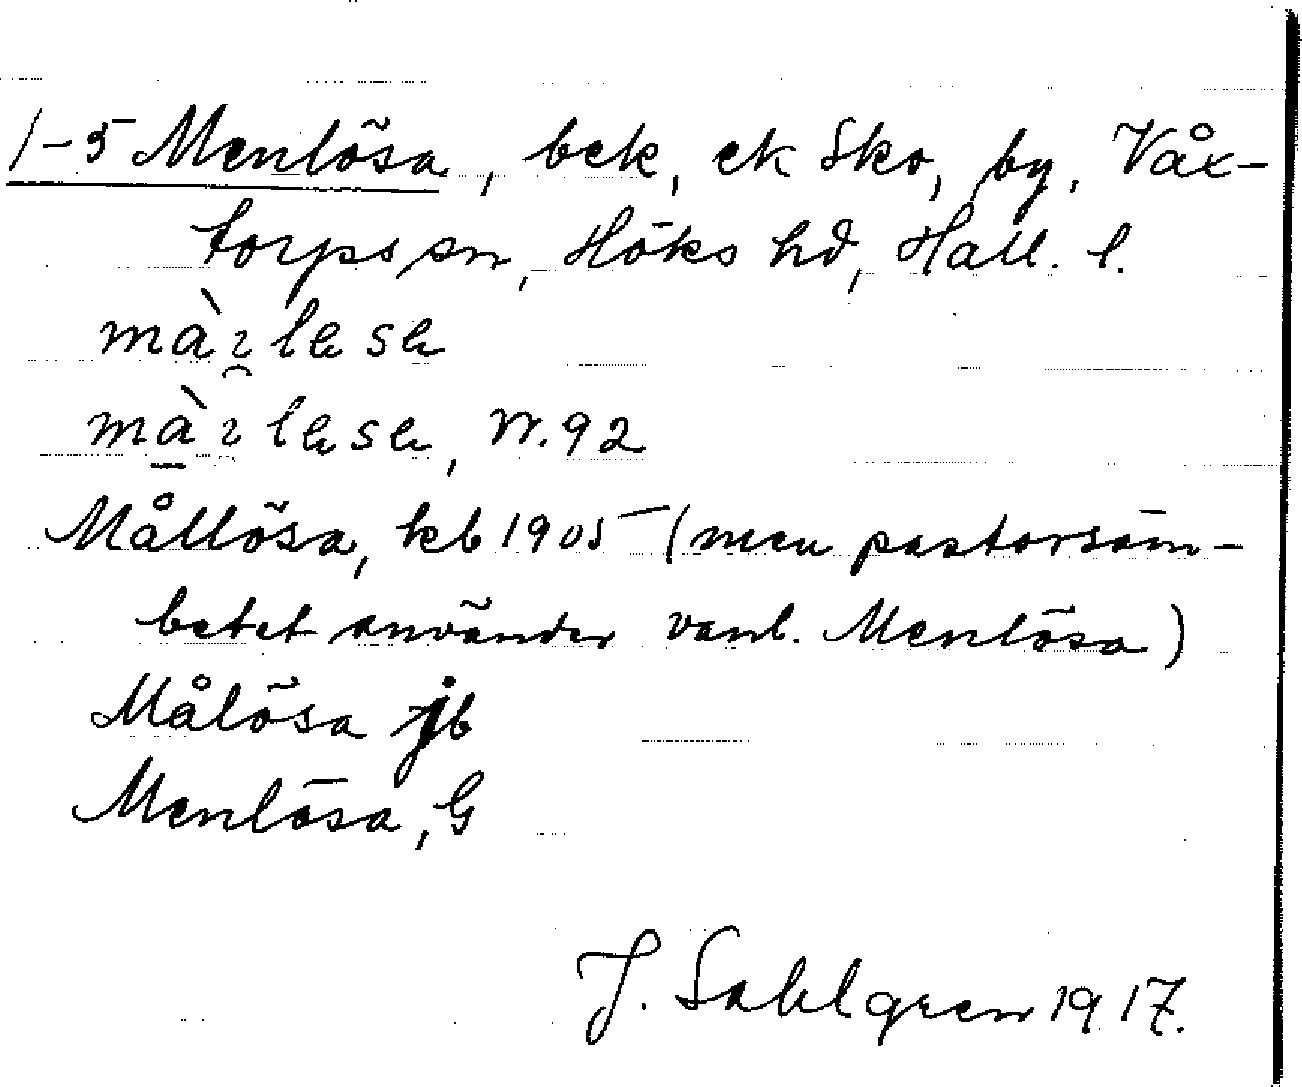 1-5 Menlösa, bek, ek Sko, by, Våx-
torps sn, Höks hd, Hall. l.
Mållösa, kb 1905 (men pastorsäm-
betet använder vanl. Menlösa)
Målösa jb
Menlösa, G
J. Sahlgren 1917.